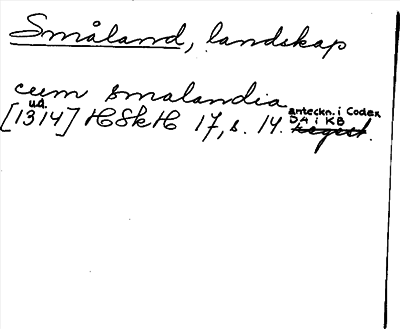 Småland, landskap
cum smalandia
[1314] u.å. HSkH 17, s. 14. anteckn. i Codex
DA i KB